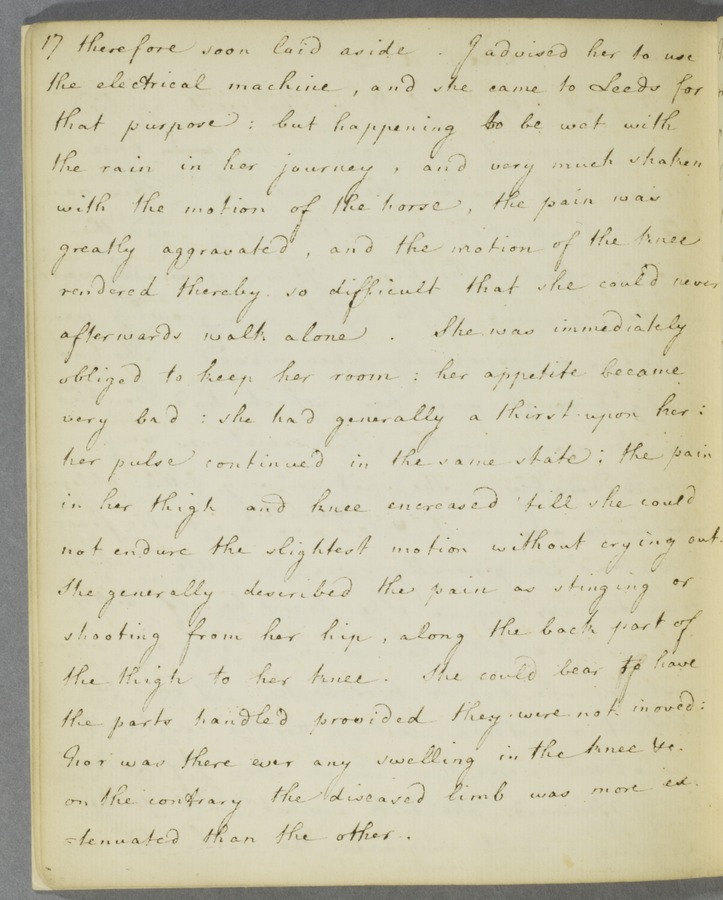 17 therefore soon laid aside . I advised her to use
the electrical machine , and she came to Leeds for
that purpose : but happening to be wet with
the rain in her journey , and very much shaken
with the motion of the horse , the pain was
greatly aggravated , and the motion of the knee
rendered thereby so difficult that she could never
afterwards walk alone . She was immediately
obliged to keep her room : her appetite became
very bad : she had generally a thirst upon her :
her pulse continued in the same state : the pain
in her thigh and knee encreased 'till she could
not endure the slightest motion without crying out.
She generally described the pain as stinging or
shooting from her hip , along the back part of
the thigh to her knee . She could bear to have
the parts handled provided they were not moved :
Nor was there ever any swelling in the knee &c.
on the contrary the diseased limb was more ex-
=tenuated than the other .